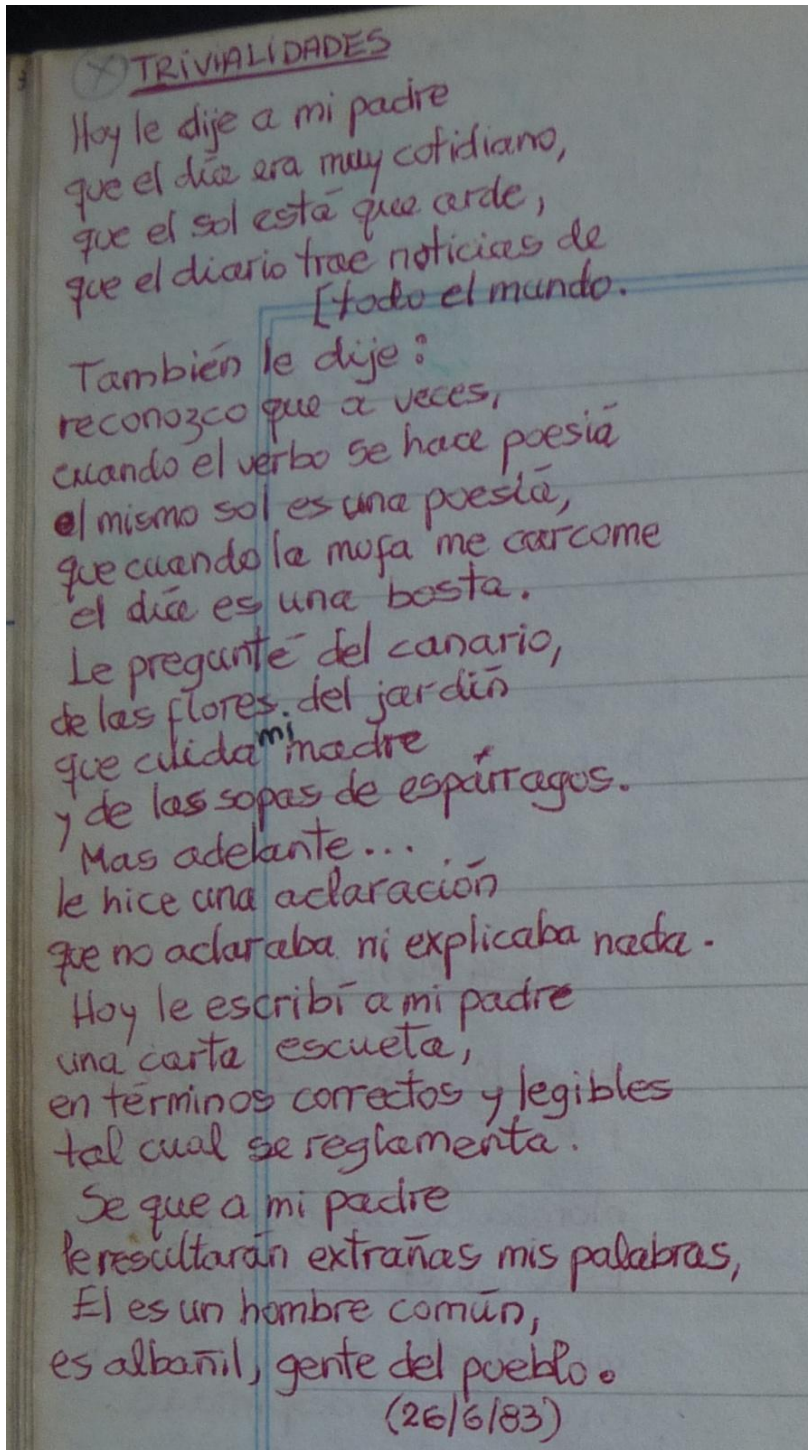 TRIVIALIDADES
Hoy le dije a mi padre
que el día era muy cotidiano,
que el sol está que arde,
que el diario trae noticias de
[todo el mundo.
También le dije:
reconozco que a veces,
cuando el verbo se hace poesía
el mismo sol es una poesía,
que cuando la mofa me carcome
el día es una bosta.
Le pregunté del canario,
de las flores del jardín
que cuida mi madre
y de las sopas de espárragos.
Mas adelante...
le hice una aclaración
que no aclaraba ni explicaba nada.
Hoy le escribí a mi padre
una carta escueta,
en términos correctos y legibles
tal cual se reglamenta.
Se que a mi padre
le resultarán extrañas mis palabras,
El es un hombre común,
es albañil, gente del pueblo.
(26/6/83)